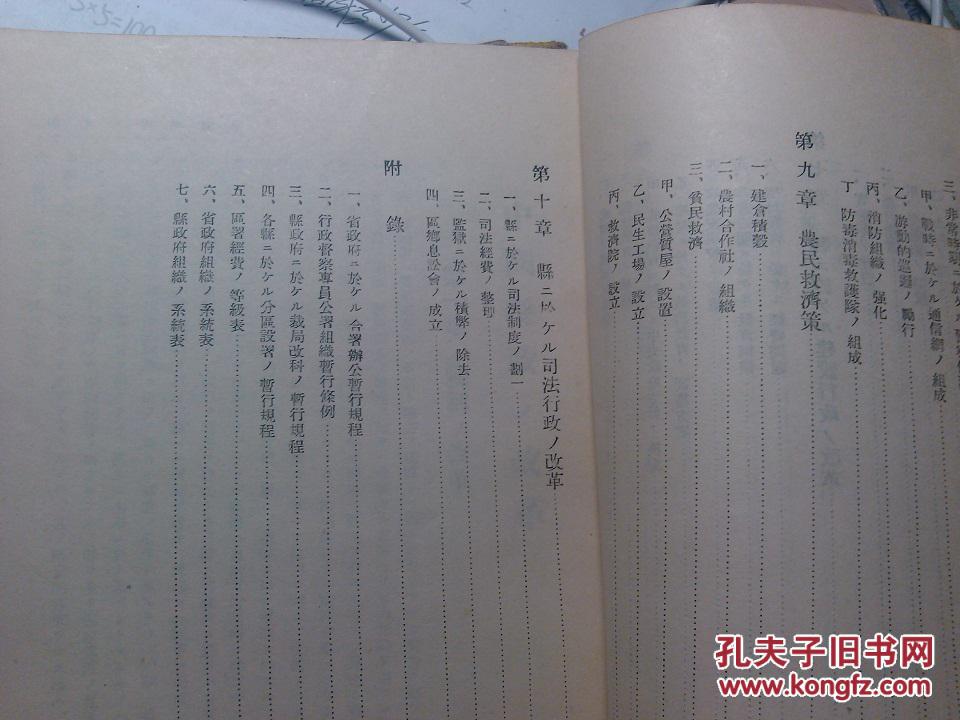 三、非常時期ニ於ケル
甲、戰時ニ於ケル通信網ノ組成
乙、游動的巡邏ノ勵行
丙、消防組織ノ强化
丁 防毒消毒救護隊ノ組成
第九章 農民救濟策
一、建倉積穀
二、農村合作社ノ組織
三、貧民救濟
甲、公營質屋ノ設置
乙、民生工場ノ設立
丙、救濟院ノ設立
第十章 縣ニ於ケル司法行政ノ改革
一、縣ニ於ケル司法制度ノ劃一
二、司法經費ノ整理
三、監獄ニ於ケル積弊ノ除去
四、區鄉息訟會ノ成立
附錄
一、省政府ニ於ケル合署辦公暫行規程
二、行政督察專員公署組織暫行條例
三、縣政府ニ於ケル裁局改科ノ暫行規程
四、各縣ニ於ケル分區設署ノ暫行規程
五、區署經費ノ等級表
六、省政府組織ノ系統表
七、縣政府組織ノ系統表
5×5=100
孔夫子旧书网
www.kongfz.com